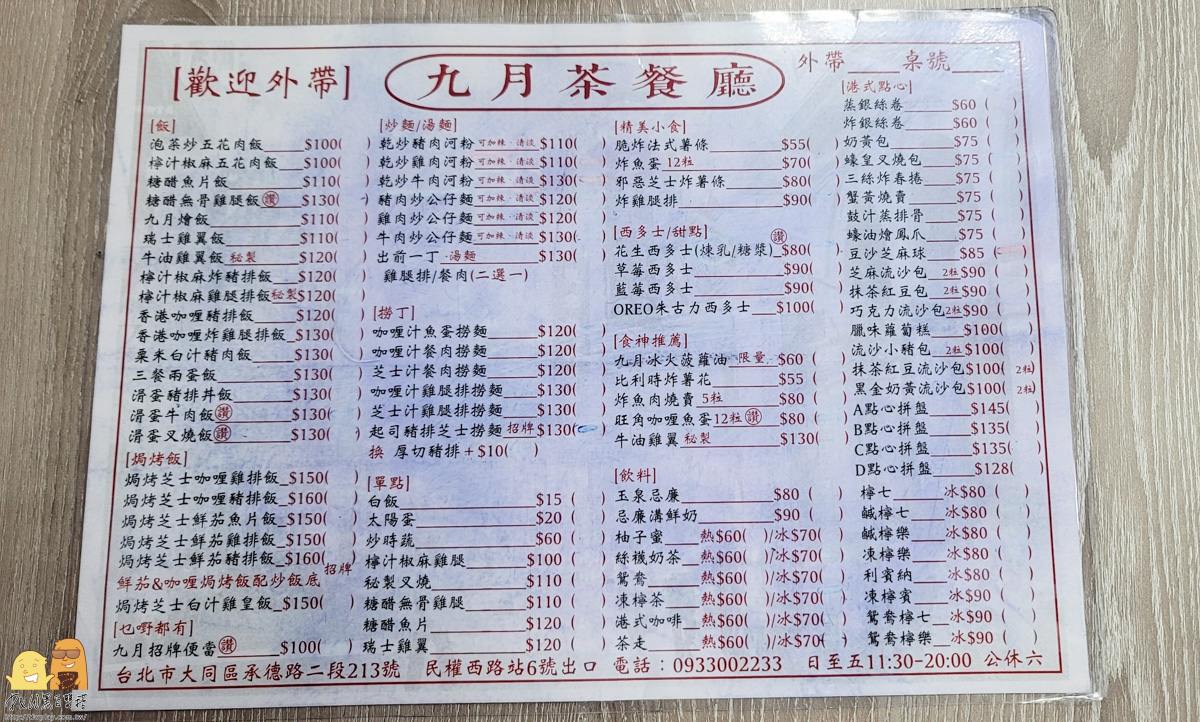 [歡迎外帶]
九月茶餐廳
外帶____桌號____
[飯]
泡茶炒五花肉飯____$100( )
檸汁椒麻五花肉飯____$100( )
糖醋魚片飯____$110( )
糖醋無骨雞腿飯 讚 $130( )
九月燴飯____$110( )
瑞士雞翼飯____$110( )
牛油雞翼飯 秘製____$120( )
檸汁椒麻炸豬排飯____$120( )
檸汁椒麻雞腿排飯 秘製 $120( )
香港咖喱豬排飯____$120( )
香港咖喱炸雞腿排飯_$130( )
粟米白汁豬肉飯____$130( )
三餐兩蛋飯____$130( )
滑蛋豬排丼飯____$130( )
滑蛋牛肉飯 讚____$130( )
滑蛋叉燒飯 讚____$130( )
[焗烤飯]
焗烤芝士咖喱雞排飯_$150( )
焗烤芝士咖喱豬排飯_$160( )
焗烤芝士鮮茄魚片飯_$150( )
焗烤芝士鮮茄雞排飯_$150( )
焗烤芝士鮮茄豬排飯_$160( ) 招牌
鮮茄&咖喱焗烤飯配炒飯底
焗烤芝士白汁雞皇飯_$150( )
[乜嘢都有]
九月招牌便當 讚____$100( )
[炒麵/湯麵]
乾炒豬肉河粉 可加辣·清淡 $110( )
乾炒雞肉河粉 可加辣·清淡 $110( )
乾炒牛肉河粉 可加辣·清淡 $130( )
豬肉炒公仔麵 可加辣·清淡 $120( )
雞肉炒公仔麵 可加辣·清淡 $120( )
牛肉炒公仔麵 可加辣·清淡 $130( )
出前一丁·湯麵____$130( )
雞腿排/餐肉(二選一)
[撈丁]
咖喱汁魚蛋撈麵____$120( )
咖喱汁餐肉撈麵____$120( )
芝士汁餐肉撈麵____$120( )
咖喱汁雞腿排撈麵____$130( )
芝士汁雞腿排撈麵____$130( )
起司豬排芝士撈麵 招牌 $130( )
換 厚切豬排+$10( )
[單點]
白飯____$15 ( )
太陽蛋____$20 ( )
炒時蔬____$60 ( )
檸汁椒麻雞腿____$100 ( )
秘製叉燒____$110 ( )
糖醋無骨雞腿____$110 ( )
糖醋魚片____$120 ( )
瑞士雞翼____$120 ( )
[精美小食]
脆炸法式薯條____$55( )
炸魚蛋 12粒____$70( )
邪惡芝士炸薯條____$80( )
炸雞腿排____$90( )
[西多士/甜點]
讚
花生西多士(煉乳/糖漿)_$80( )
草莓西多士____$90( )
藍莓西多士____$90( )
OREO朱古力西多士____$100( )
[食神推薦]
九月冰火菠蘿油_限量_$60 ( )
比利時炸薯花____$55 ( )
炸魚肉燒賣 5粒____$80 ( )
旺角咖喱魚蛋 12粒 讚 $80 ( )
牛油雞翼 秘製____$130( )
[飲料]
玉泉忌廉____$80 ( )
忌廉溝鮮奶____$90 ( )
柚子蜜____熱$60( )/冰$70( )
絲襪奶茶____熱$60( )/冰$70( )
鴛鴦____熱$60( )/冰$70( )
凍檸茶____熱$60( )/冰$70( )
港式咖啡____熱$60( )/冰$70( )
茶走____熱$60( )/冰$70( )
[港式點心]
蒸銀絲卷____$60 ( )
炸銀絲卷____$60 ( )
奶黃包____$75 ( )
蠔皇叉燒包____$75 ( )
三絲炸春捲____$75 ( )
蟹黃燒賣____$75 ( )
鼓汁蒸排骨____$75 ( )
蠔油燴鳳爪____$75 ( )
豆沙芝麻球____$85 ( )
芝麻流沙包__2粒$90 ( )
抹茶紅豆包__2粒$90 ( )
巧克力流沙包 2粒$90 ( )
臘味蘿蔔糕____$100( )
流沙小豬包__2粒$100( )
抹茶紅豆流沙包$100( 2粒)
黑金奶黃流沙包$100( 2粒)
A點心拼盤____$145( )
B點心拼盤____$135( )
C點心拼盤____$135( )
D點心拼盤____$128( )
檸七____冰$80 ( )
鹹檸七____冰$80 ( )
鹹檸樂____冰$80 ( )
凍檸樂____冰$80 ( )
利賓納____冰$80 ( )
凍檸賓____冰$90 ( )
鴛鴦檸七__冰$90 ( )
鴛鴦檸樂__冰$90 ( )
台北市大同區承德路二段213號 民權西路站6號出口 電話:0933002233 日至五11:30-20:00 公休六